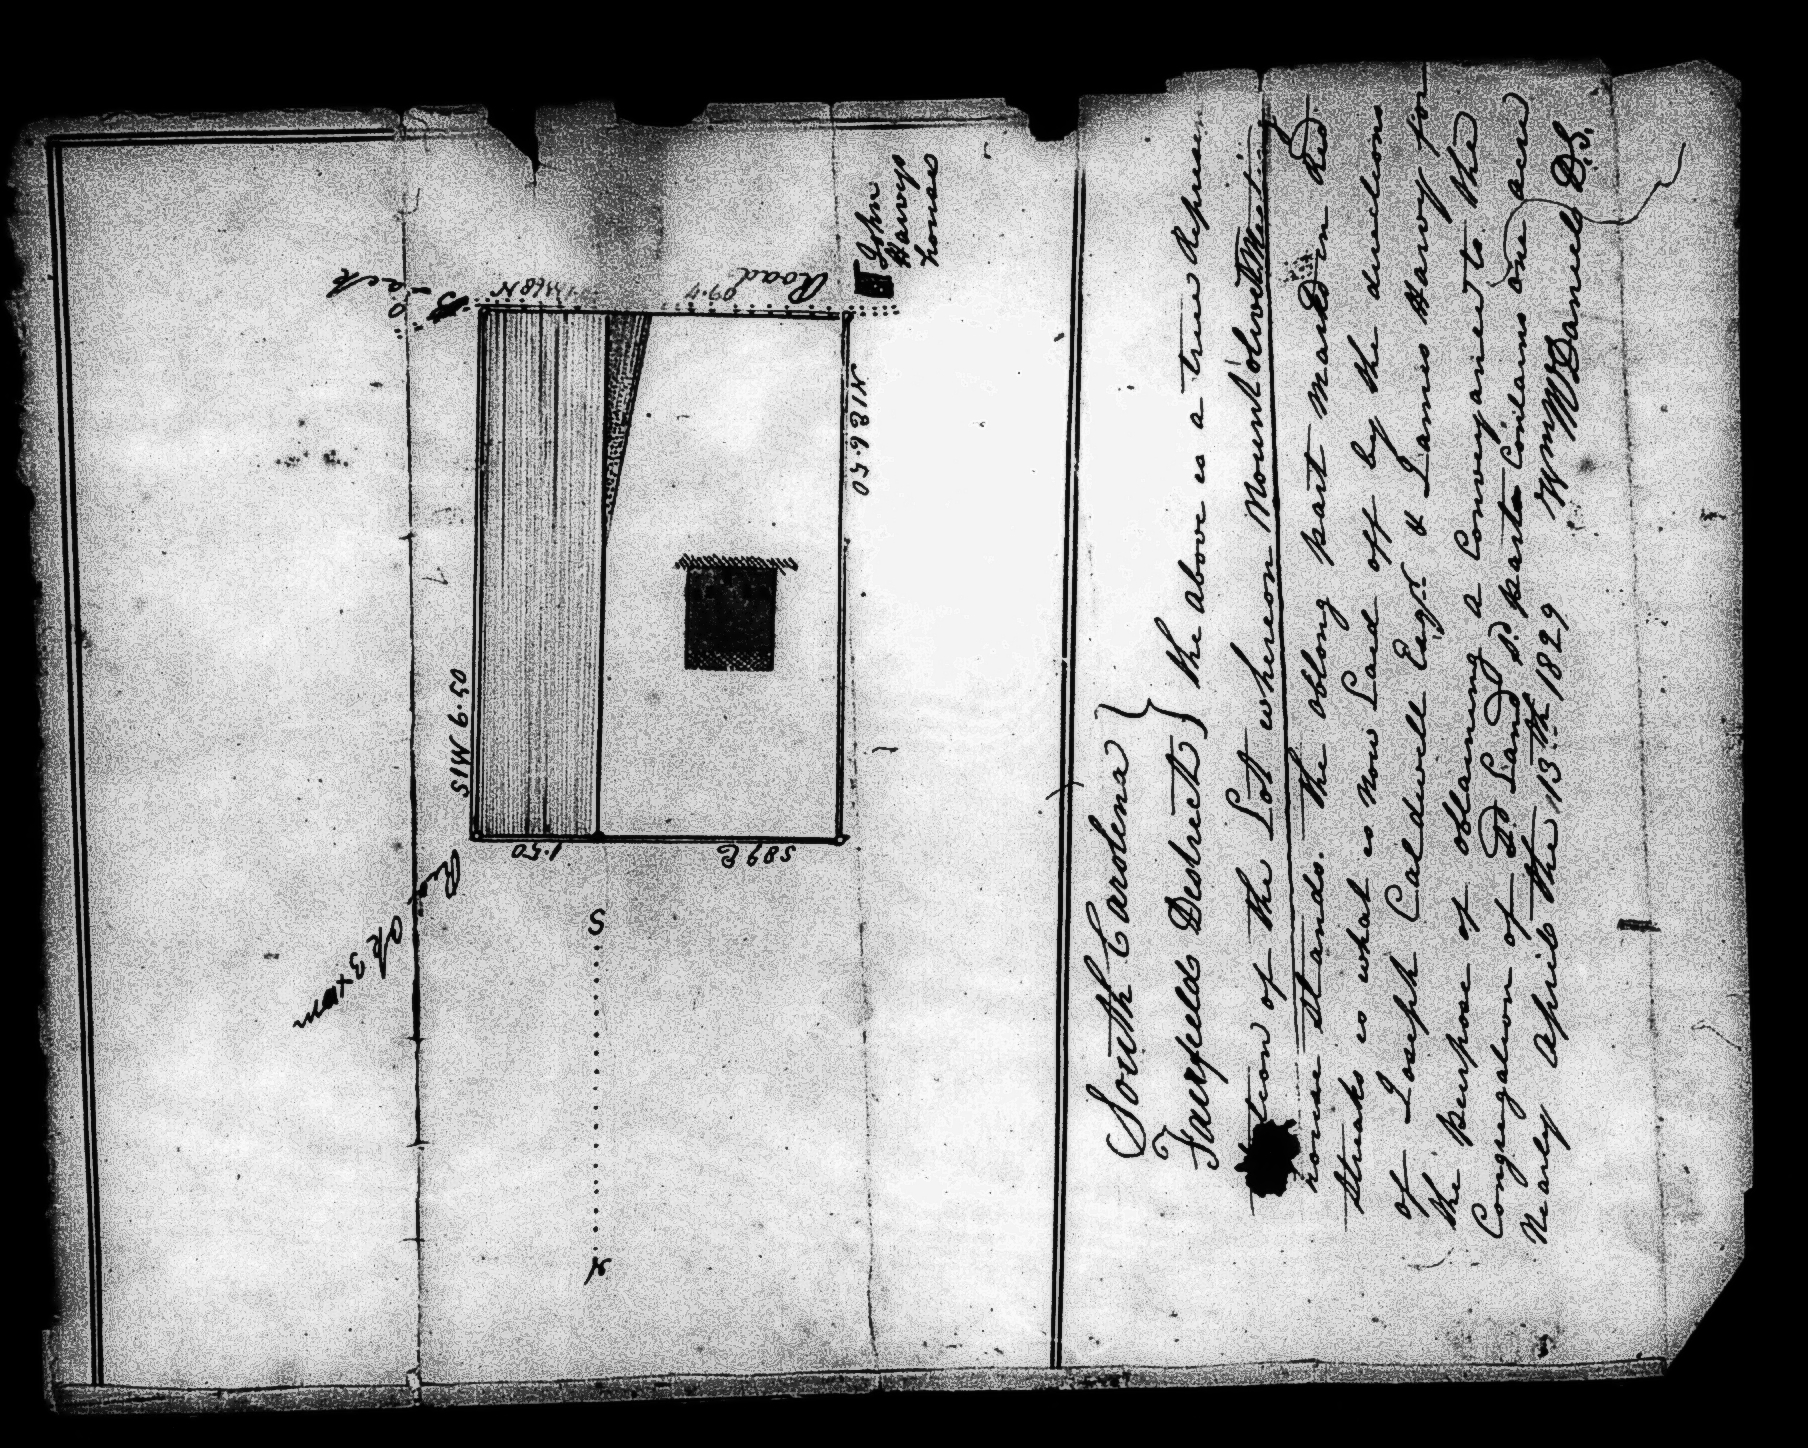 John
Harvys
house
Road
N 1 E 6.50
S 89 E
1.50
S 1 W 6.50
Red
Oak 3 x
S
N
South Carolina }
Fairfield District } The above is a true Represen
tation of the Lot whereon Mount olivet Meeting
house stands. The oblong part marked in Red
Streaks is what is now Laid off by the directions
of Joseph Caldwell Esqr. & James Harvy for
the purpose of obtaining a Conveyance to the
Congregation of Sd Land Sd. parts Contains one acre
Nearly April the 13th 1829
Wm McDaniel D.S.